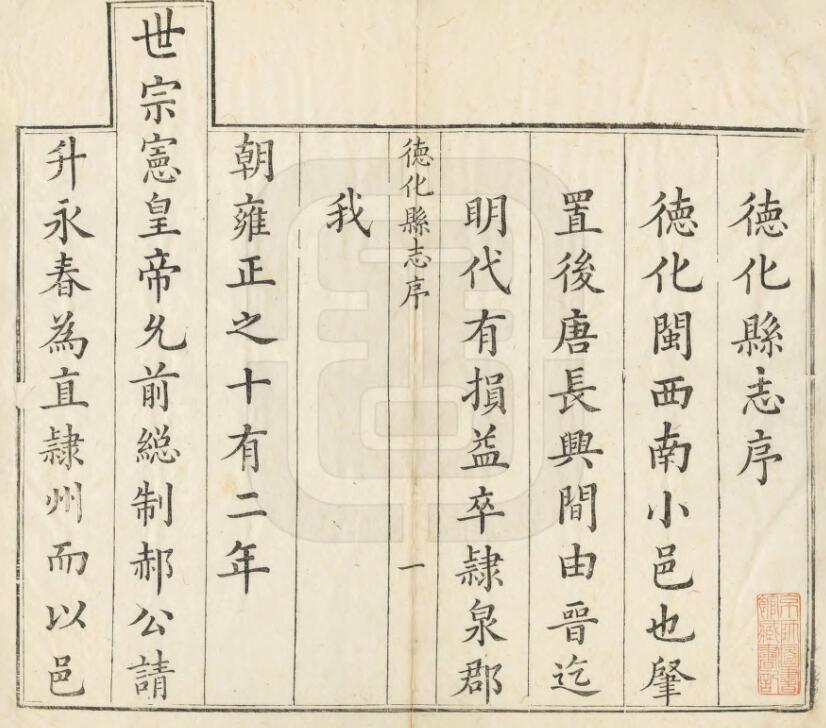 德化縣志序
德化閩西南小邑也肇
置後唐長興間由晉迄
明代有損益卒隸泉郡
我
德化縣志序
一
朝雍正之十有二年
世宗憲皇帝允前總制郝公請
升永春為直隸州而以邑